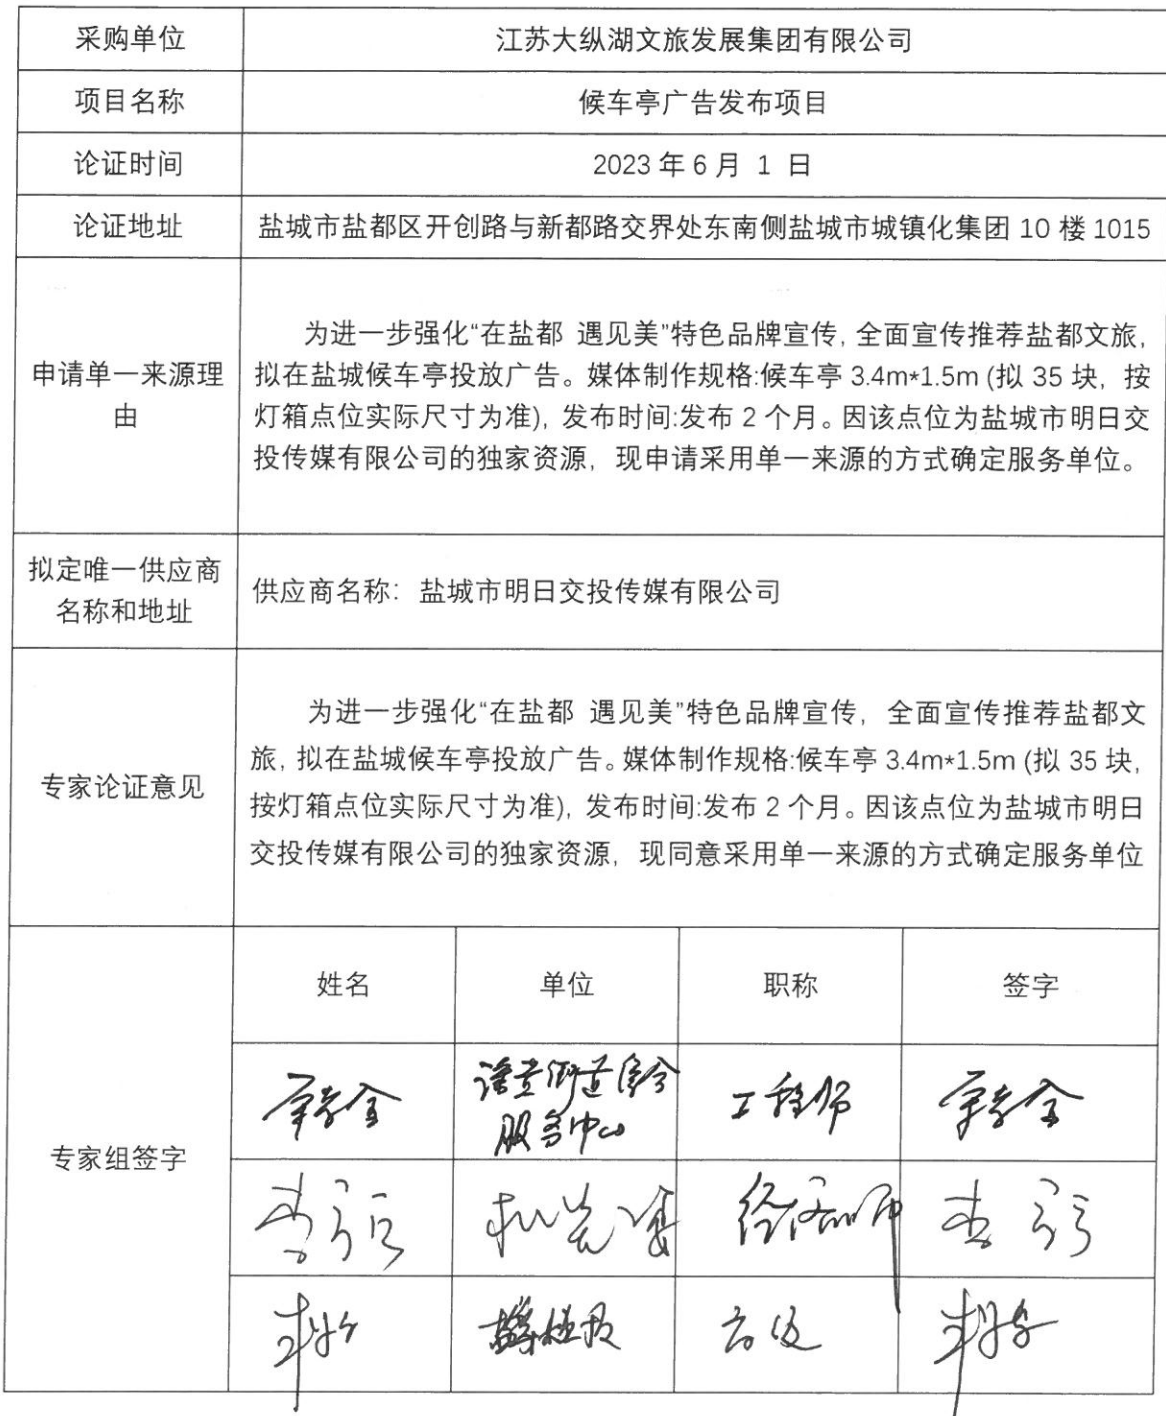 采购单位 江苏大纵湖文旅发展集团有限公司
项目名称 候车亭广告发布项目
论证时间 2023年6月 1 日
论证地址 盐城市盐都区开创路与新都路交界处东南侧盐城市城镇化集团 10 楼 1015
申请单一来源理
由
为进一步强化“在盐都 遇见美”特色品牌宣传, 全面宣传推荐盐都文旅,
拟在盐城候车亭投放广告。媒体制作规格:候车亭 3.4m*1.5m (拟 35 块, 按
灯箱点位实际尺寸为准), 发布时间:发布 2 个月。因该点位为盐城市明日交
投传媒有限公司的独家资源, 现申请采用单一来源的方式确定服务单位。
拟定唯一供应商
名称和地址
供应商名称: 盐城市明日交投传媒有限公司
专家论证意见
为进一步强化“在盐都 遇见美”特色品牌宣传, 全面宣传推荐盐都文
旅, 拟在盐城候车亭投放广告。媒体制作规格:候车亭 3.4m*1.5m (拟 35 块,
按灯箱点位实际尺寸为准), 发布时间:发布 2 个月。因该点位为盐城市明日
交投传媒有限公司的独家资源, 现同意采用单一来源的方式确定服务单位
专家组签字
姓名 单位 职称 签字
服务中心
工程师